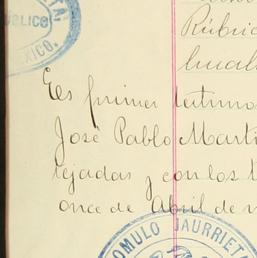 PUBLICO
MEXICO.
Rúbric
Es primer testimo
José Pablo Marti
tejadas y con los t
once de Abril de m
ROMULO JAURRIETA